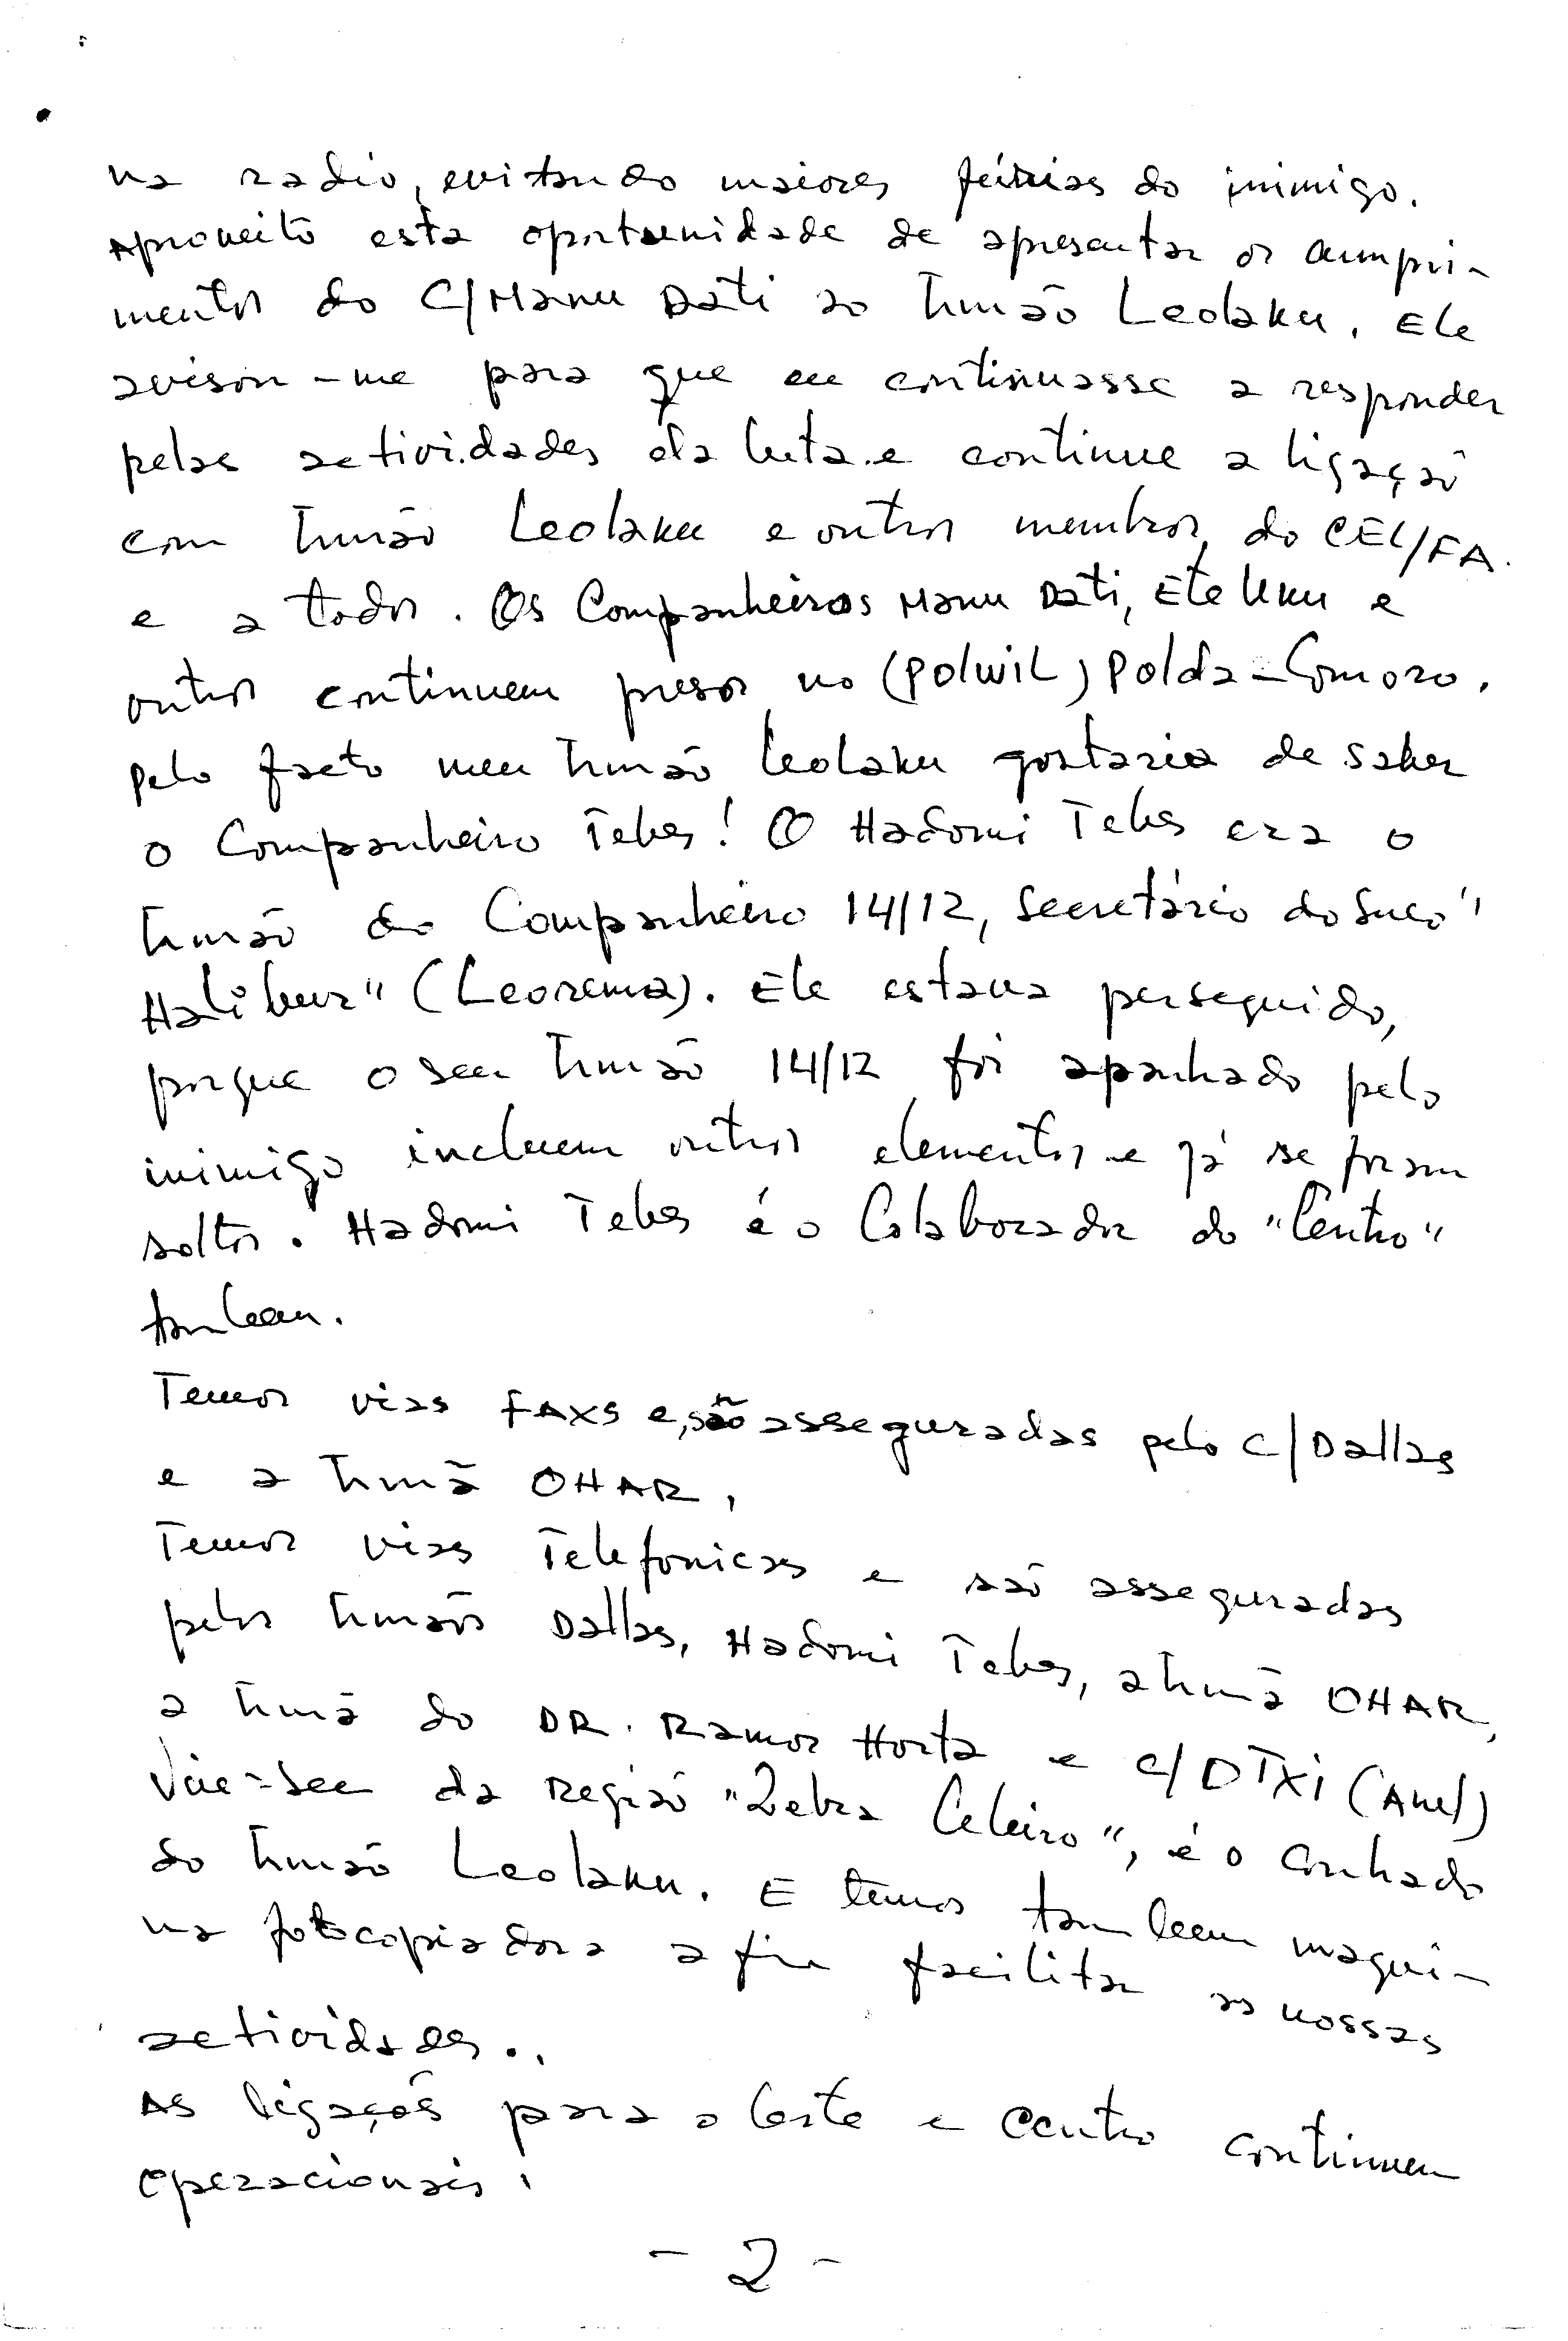 na radio, evitando maiores fúrias do inimigo.
Aproveito esta oportunidade de apresentar os cumpri-
mentos do C/Manu Dati ao Irmão Leolaku. Ele
avisou-me para que eu continuasse a responder
pelas actividades da luta e continue a ligação
com Irmão Leolaku e outros membros do CEL/FA.
e a todos. Os Companheiros Manu Dati, Ete Uku e
outros continuem presos no (POLWIL) Polda-Comoro.
Pelo facto meu Irmão Leolaku gostaria de saber
o Companheiro Tebes! O Hadomi Tebes era o
Irmão do Companheiro 14/12, Secretário do Suco "
Halibur" (Leorema). Ele estava perseguido,
porque o seu Irmão 14/12 foi apanhado pelo
inimigo incluem outros elementos e já se foram
soltos. Hadomi Tebes é o Colaborador do "Centro"
tambem.
Temos vias FAXS e, são asseguradas pelo C/Dallas
e a Irmã OHAR,
Temos vias Telefonicas e são asseguradas
pelos Irmãos Dallas, Hadomi Tebes, a Irmã OHAR,
a Irmã do DR. Ramos Horta e C/DTXi (Anel)
Vice-Sec da Região "Zebra Celeiro", é o Cunhado
do Irmão Leolaku. E temos tambem maqui-
na fotocopiadora a fim facilitar as nossas
actividades..
As ligações para o Leste e Centro continuem
operacionais.
- 2 -